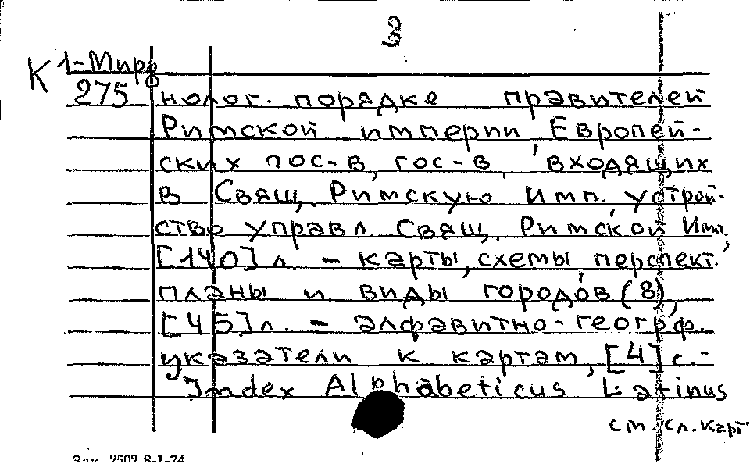 3
К 1-Мир
275 нолог. порядке правителей
Римской империи, Европей-
ских гос-в, гос-в, входящих
в Свящ. Римскую Имп., устрой-
ство управл. Свящ. Римской Имп.,
[140] л. – карты, схемы, перспект.
планы и виды городов (8),
[45] л. – алфавитно-геогр.
указатели к картам, [4] с. –
Index Alphabeticus Latinus
см. сл. карт
Зак. 2502 8-1-74